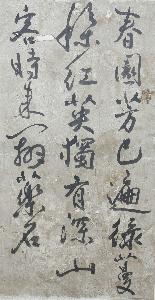 春園芳已遍綠蔓
雜紅英獨有深山
客時來一撷藥名